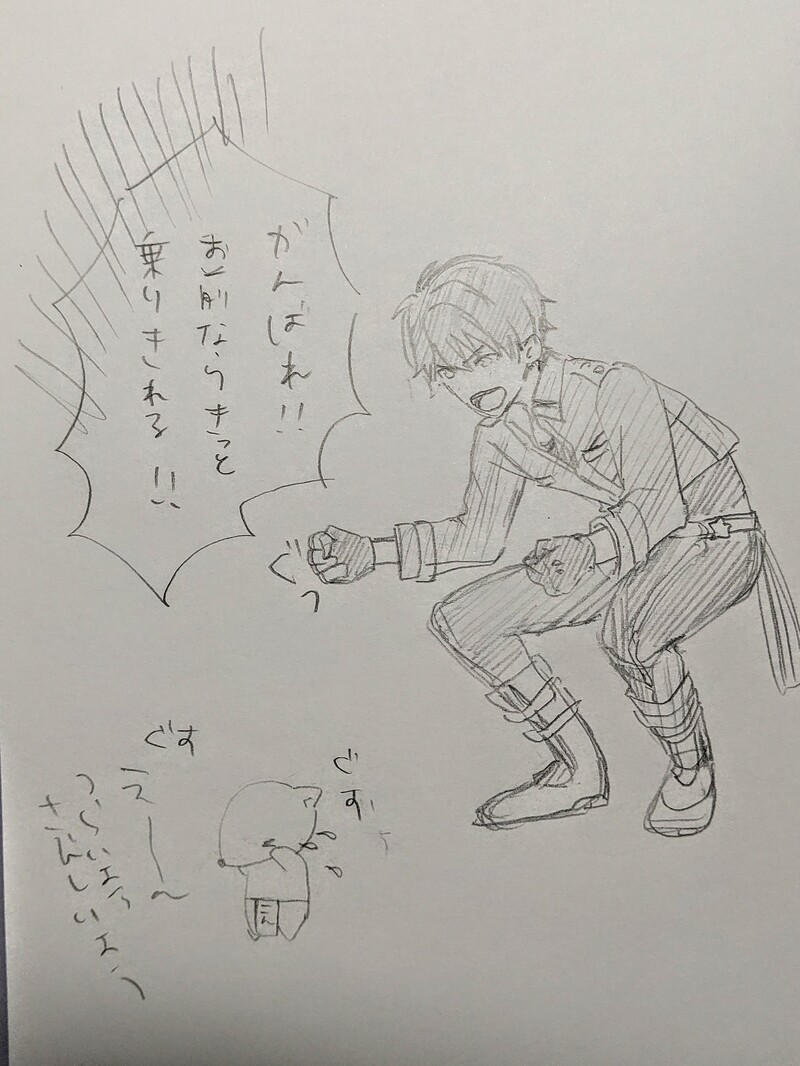 がんばれ!!
お前ならきっと
乗りきれる!!
ぐっ
ぐす
ぐす
うえーー
つらいよう
さみしいよう